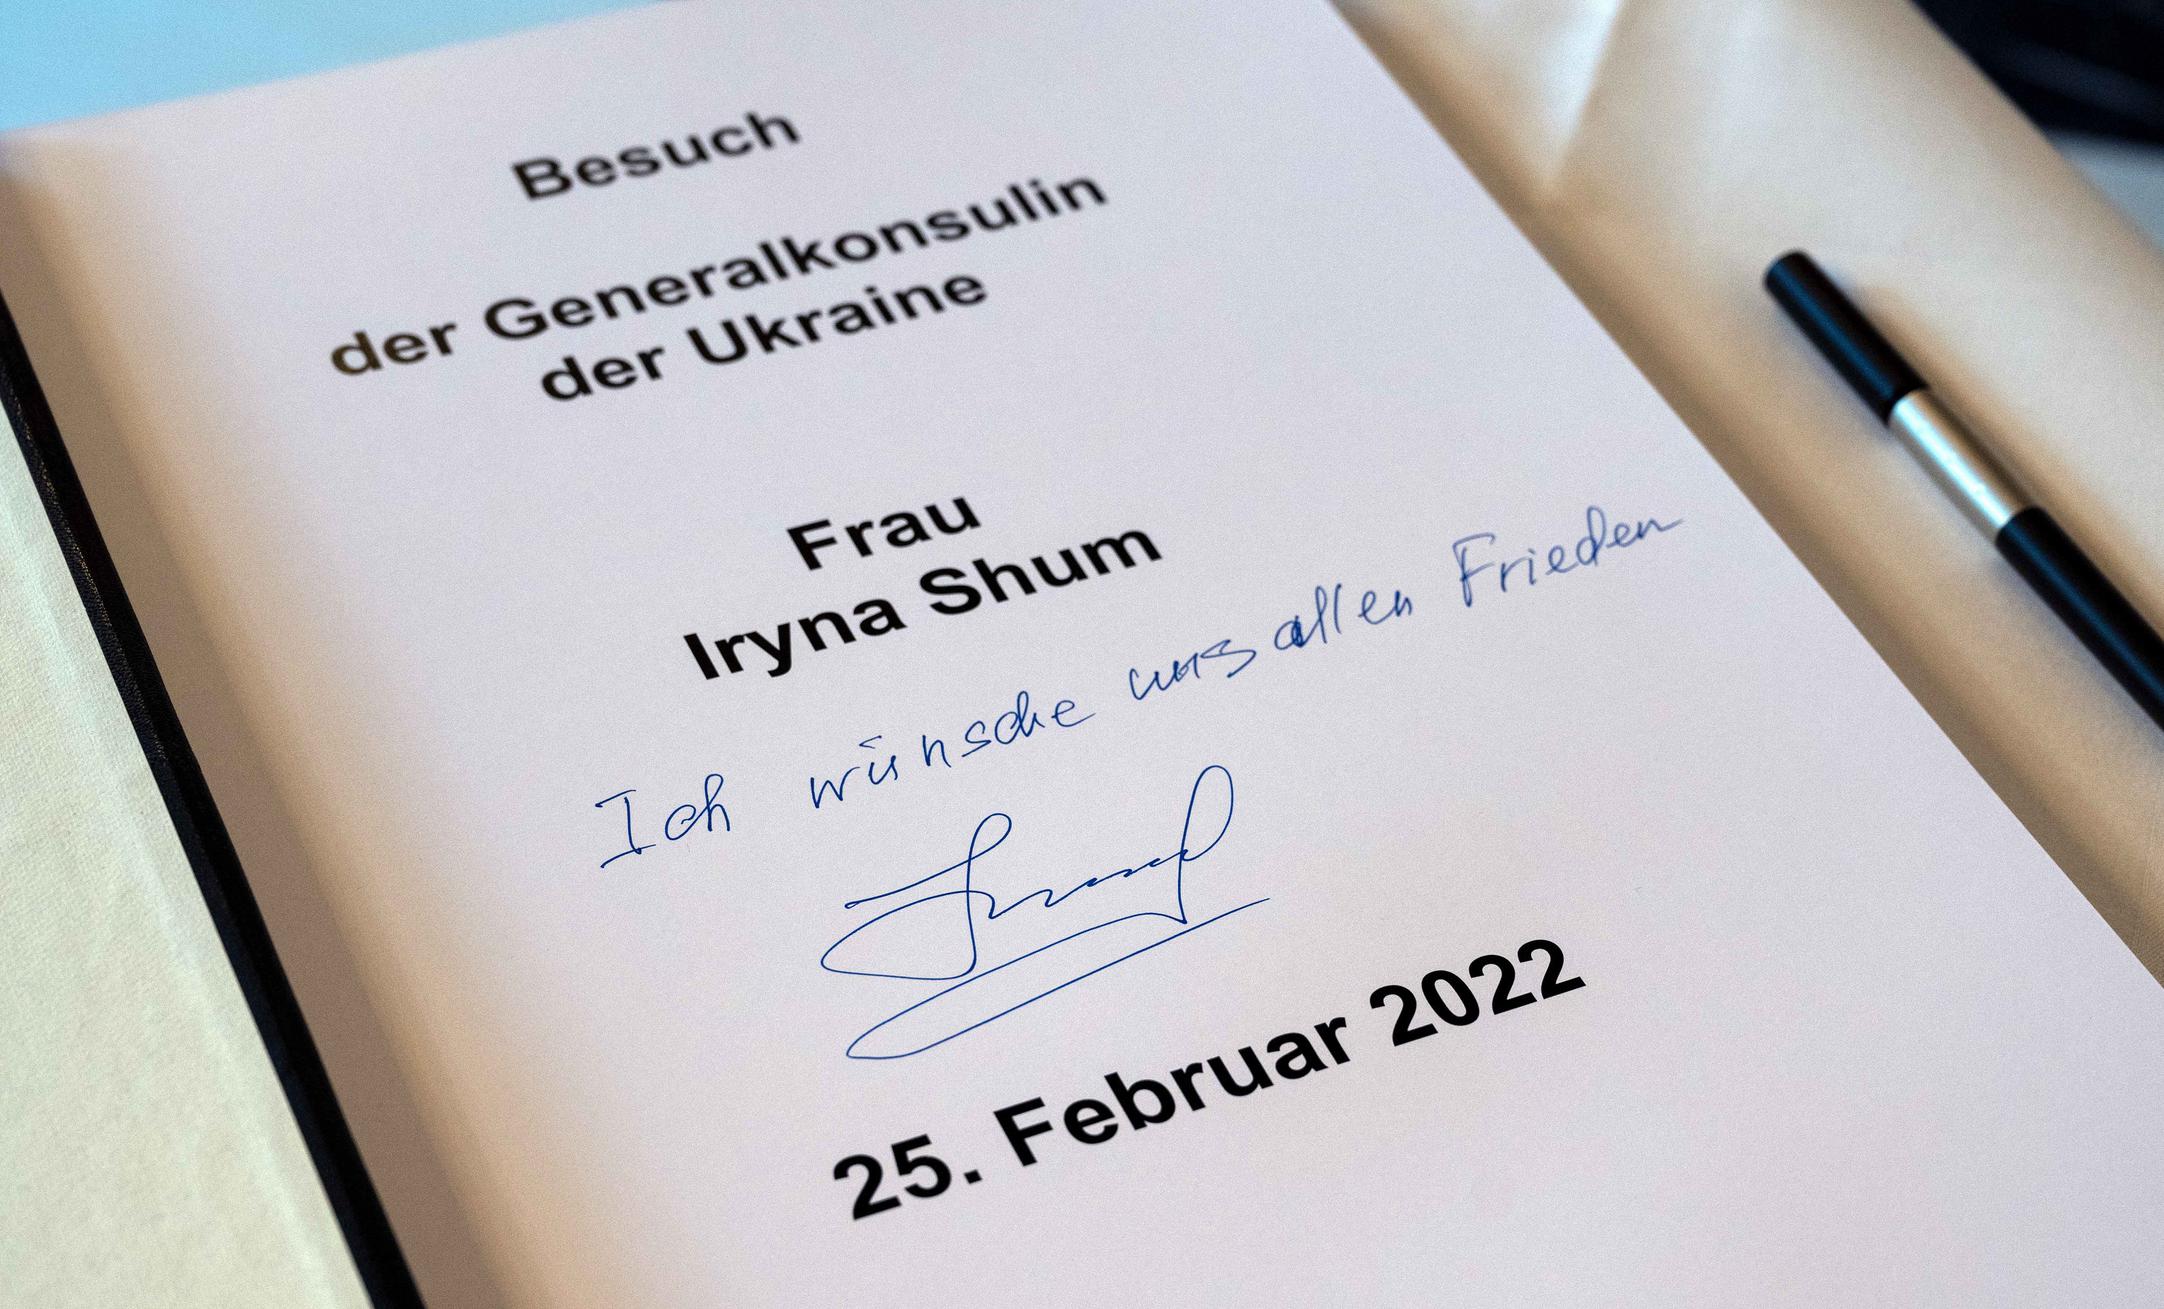 Besuch
der Generalkonsulin
der Ukraine
Frau
Iryna Shum
Ich wünsche uns allen Frieden
25. Februar 2022